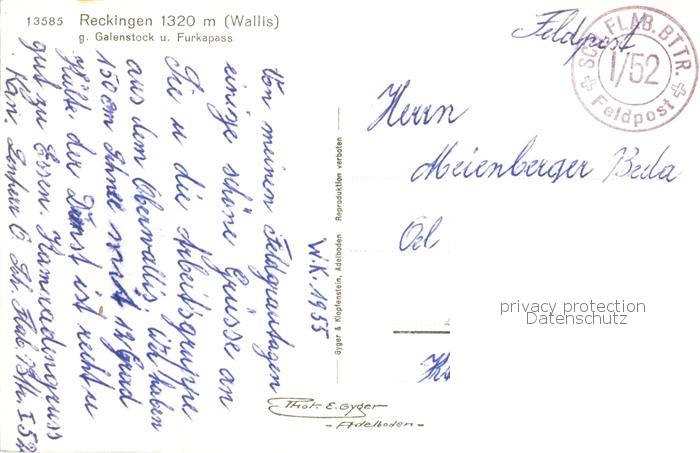 13585 Reckingen 1320 m (Wallis)
g. Galenstock u. Furkapass
W.K. 1955
Von meinen Feldgrautagen
einige schöne Grüsse an
Sie u die Arbeitsgruppe
aus dem Oberwallis, wir haben
150 cm Schnee und 12 Grad
Kälte der Dienst ist recht u
gut zu Essen. Kameradengruss
Kan. 6 Sch. Flab. Bttr. I 52
Gyger & Klopfenstein, Adelboden Reproduktion verboten
Feldpost
SCH. FLAB. BTTR.
I/52
Feldpost
Herrn
Meienberger Beda
Oel
privacy protection
Datenschutz
Phot. E. Gyger
- Adelboden -